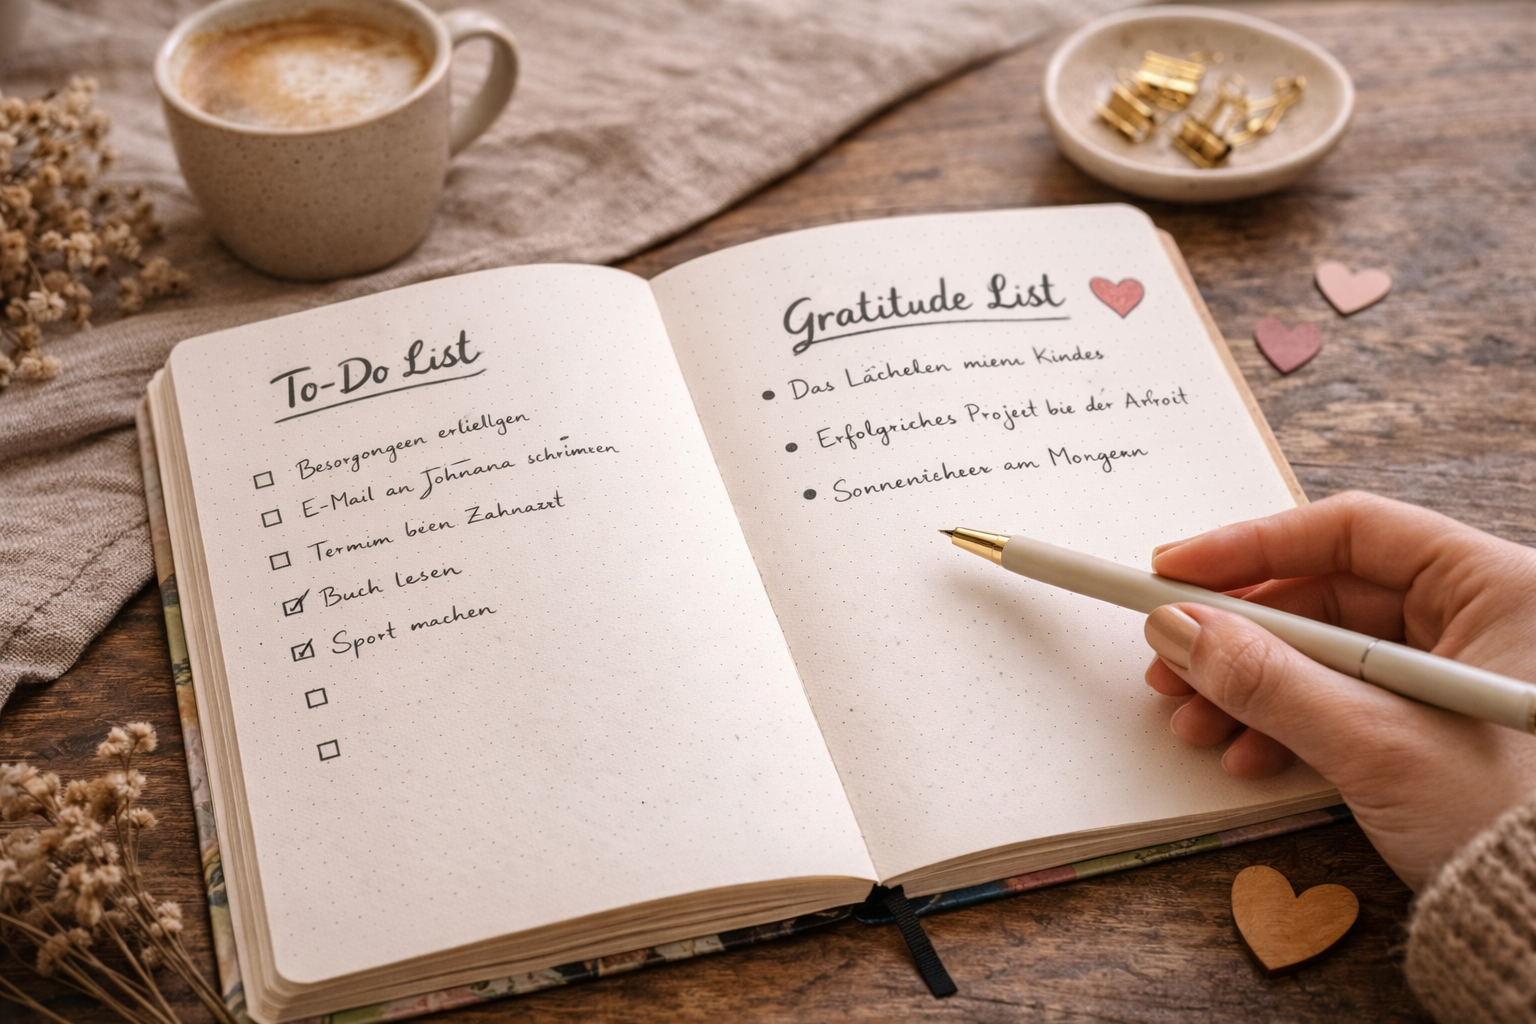 To-Do List
Besorgongeen erliellgen
E-Mail an Johnana schrimren
Termim been Zahnazxt
Buch lesen
Sport machen
Gratitude List
Das Lächelen mienu Kindes
Erfolgriches Projeet bie der Arbroit
Sonnenicheer am Mongenn